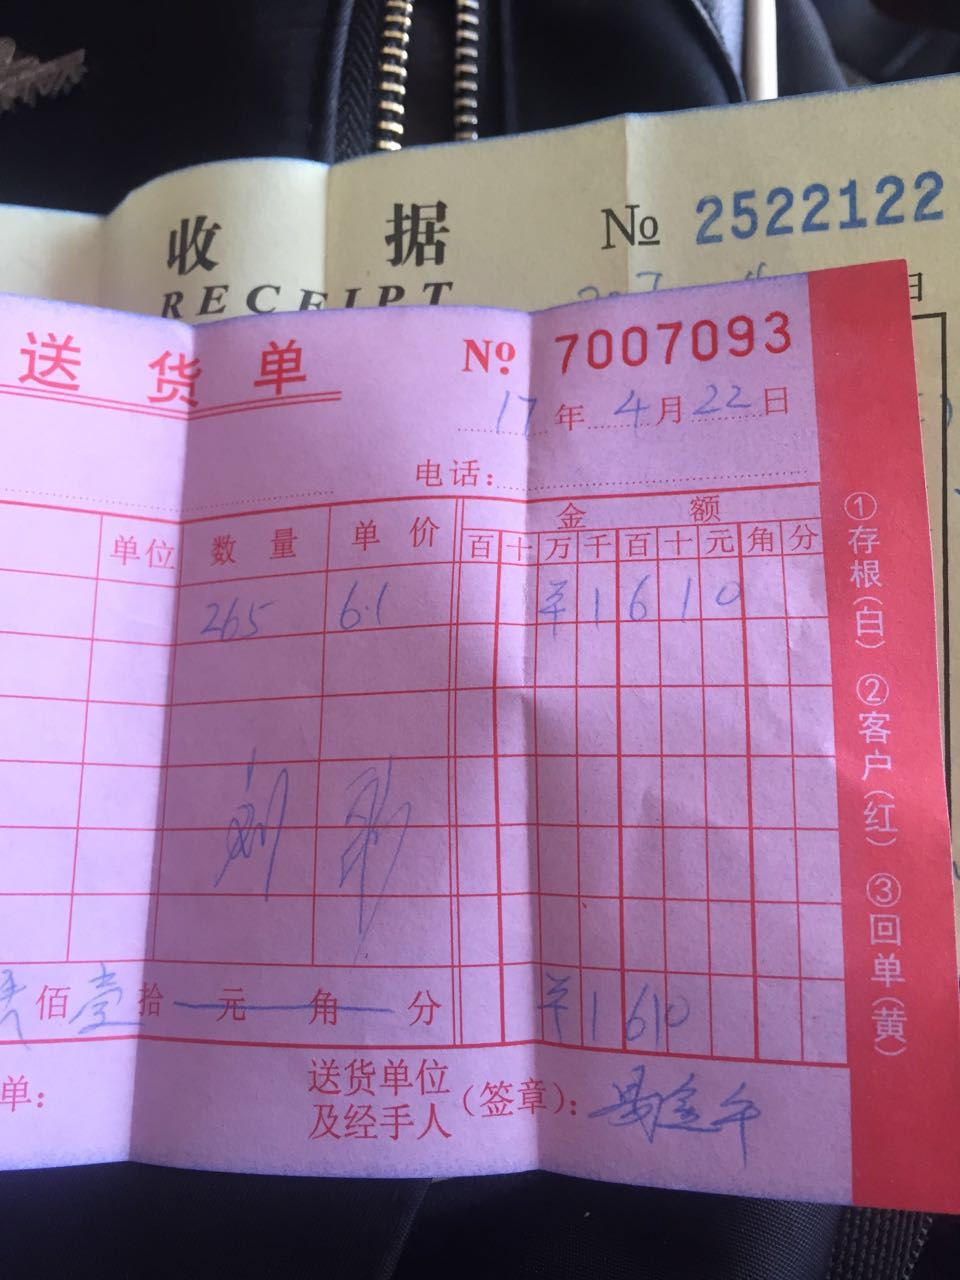 收 据
№ 2522122
RECEIPT
日
送 货 单
№ 7007093
17 年 4 月 22 日
电话：
单位 数 量 单 价 金 额
百 十 万 千 百 十 元 角 分
265 6.1 ¥ 1 6 1 0
佰 壹 拾 元 角 分 ¥ 1 6 1 0
单：
送货单位
及经手人
（签章）：
①存根（白）②客户（红）③回单（黄）